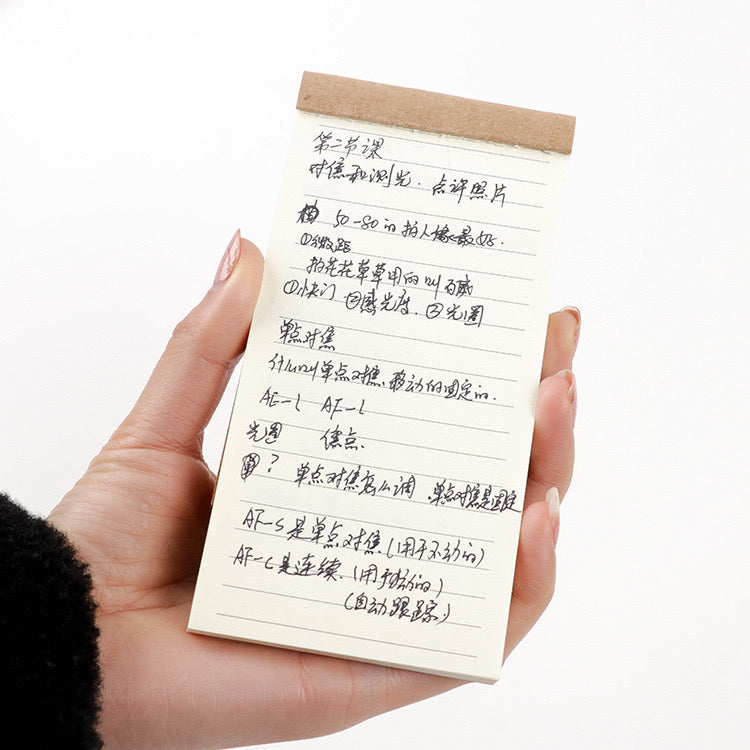 第二节课
对焦和测光.点评照片
50-80的拍人像最好.
①微距
拍花花草草用的叫百威
①快门 ②感光度. ③光圈
单点对焦
什么叫单点对焦.移动的固定的.
AE-L AF-L
光圈 焦点
? 单点对焦怎么调 单点对焦是固定
AF-S是单点对焦(用于不动的)
AF-C是连续.(用于动的)
(自动跟踪.)